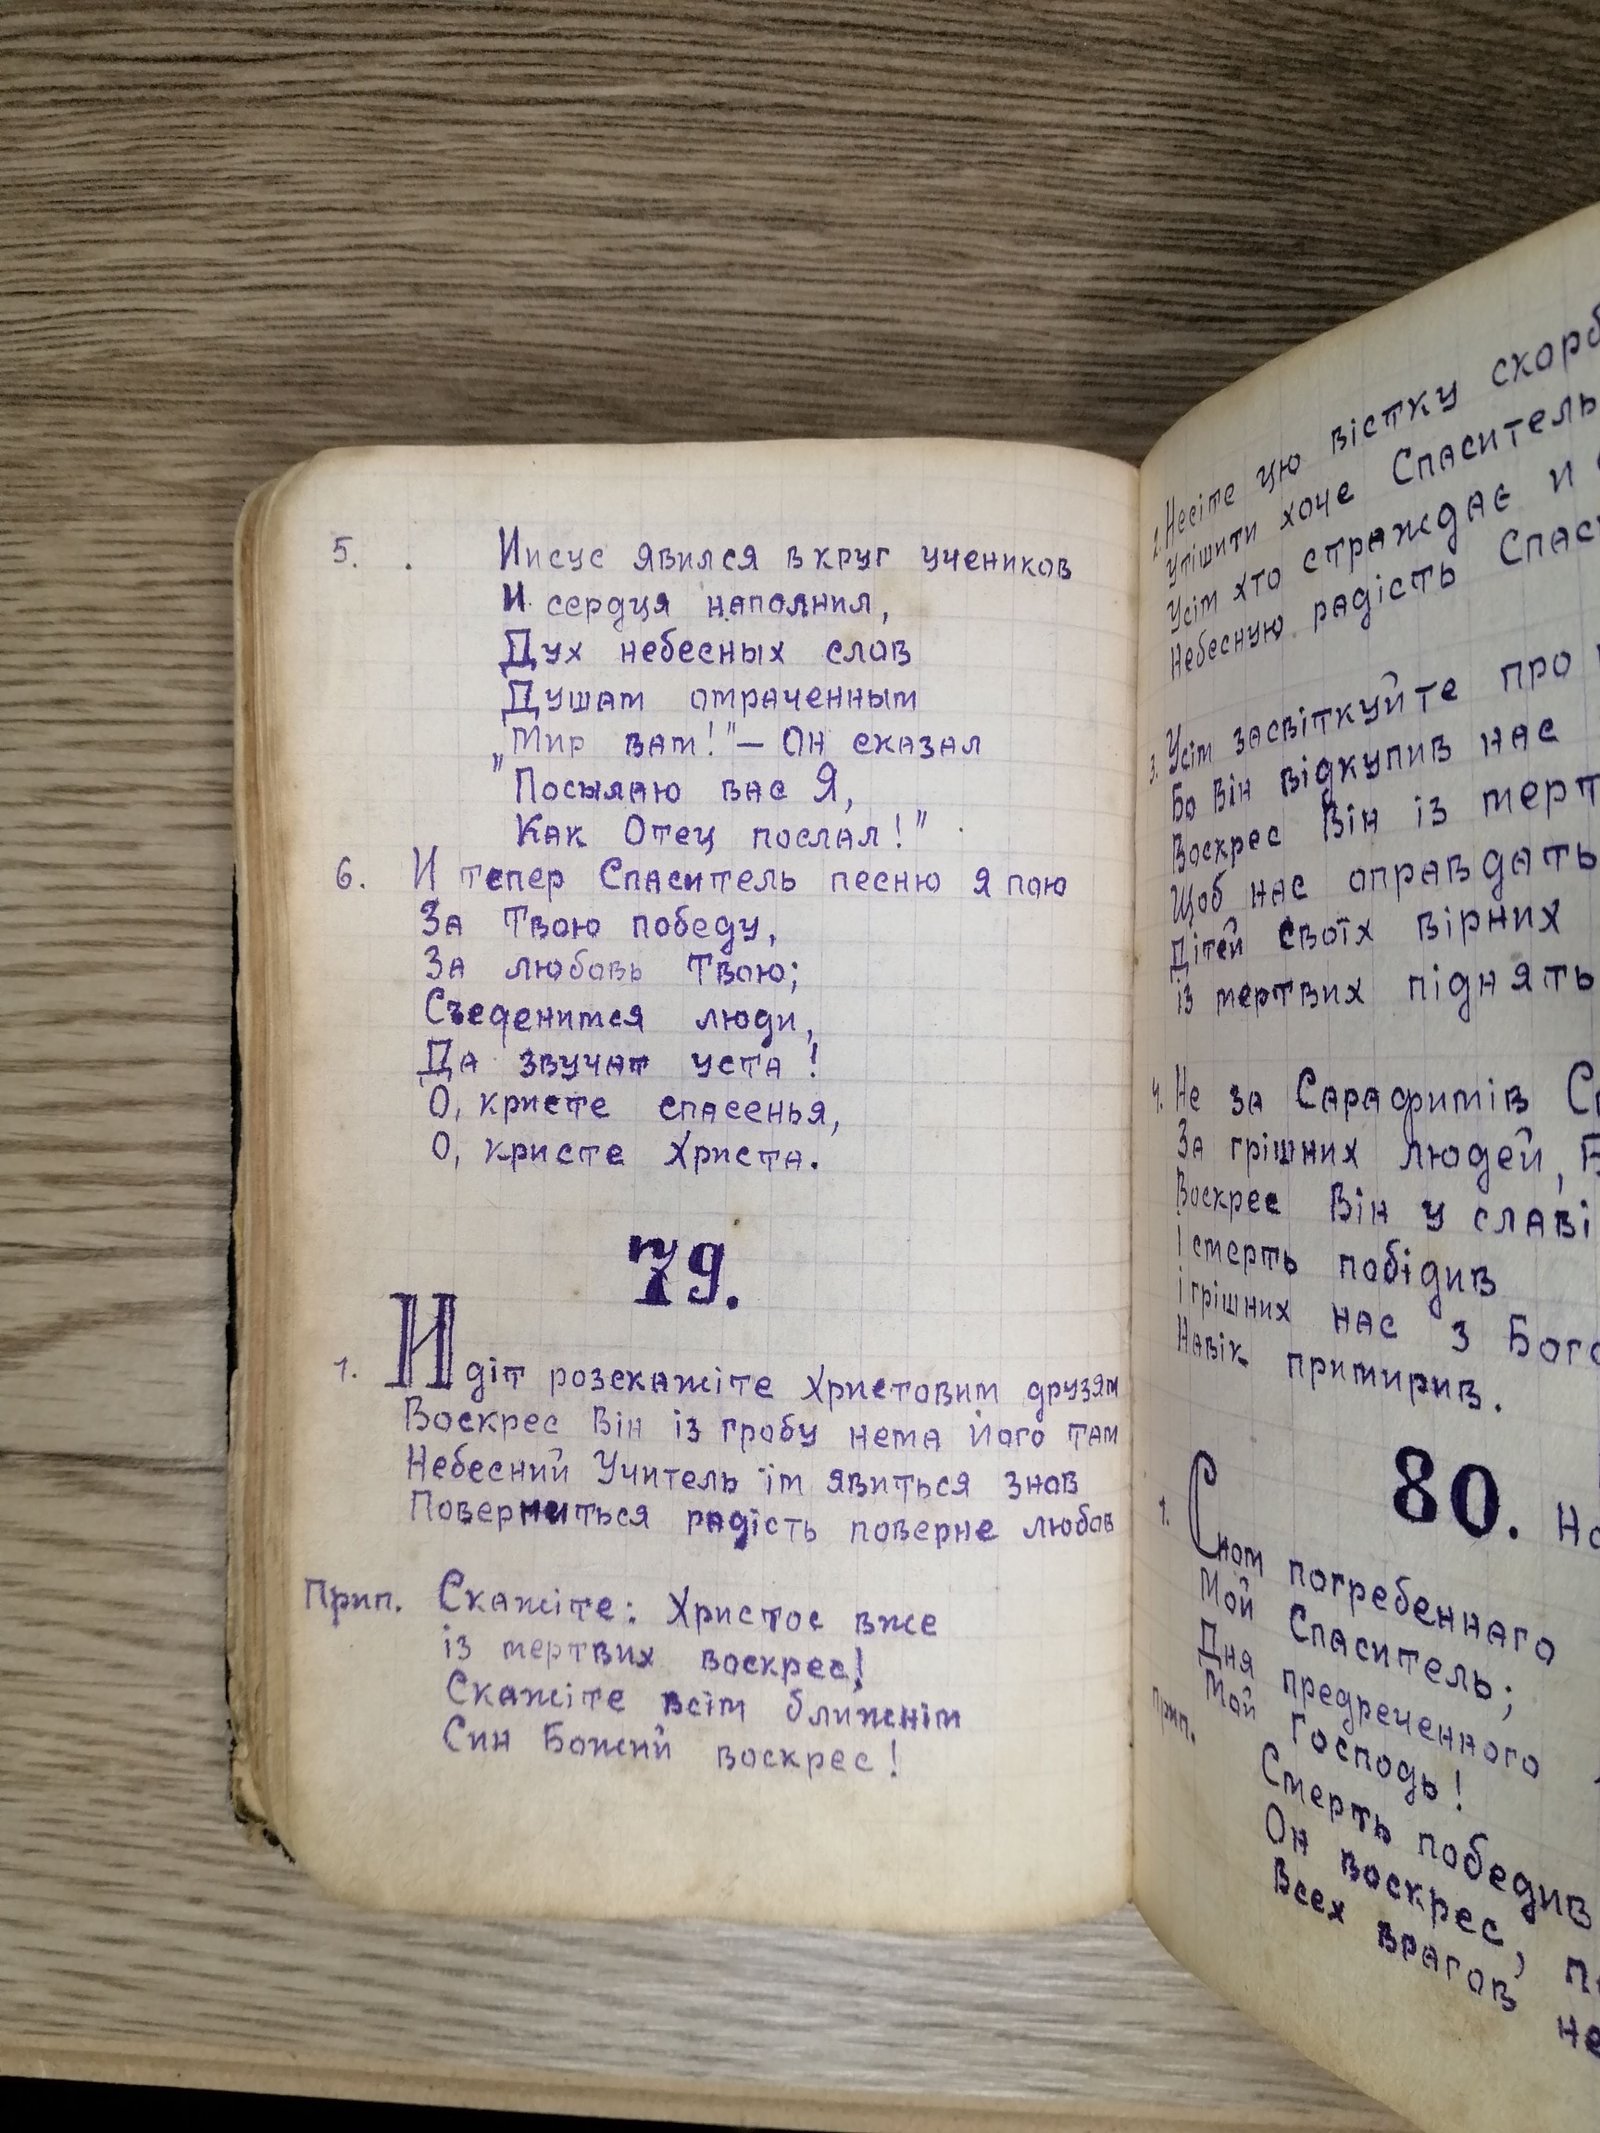 5. Иисус явился в круг учеников
И сердця наполнил,
Дух небесных слов
Душам омраченным
„Мир вам!"— Он сказал
"Посылаю вас Я,
Как Отец послал!"
6. И тепер Спаситель песню я пою
За Твою победу,
За любовь Твою;
Съеденимся люди,
Да звучат уста!
О, кристе спасенья,
О, кристе Христа.
79.
1. Идіт розскажіте Христовим друзям
Воскрес Він із гробу нема його там
Небесний Учитель їм явиться знов
Поверниться радість поверне любов
Прип. Скажіте: Христос вже
із мертвих воскрес!
Скажіте всім ближнім
Син Божий воскрес!
2. Несіте цю вістку
утішити хоче Спаситель
Усім хто страждає и
Небесную радість
3. Усім засвіткуйте про
Бо Він відкупив нас
Воскрес Він із
Щоб нас оправдать
Дітей своїх вірних
із мертвих піднять
4. Не за Сарафимів
За грішних людей,
Воскрес Він у славі
і смерть побідив
і грішних нас з
Навік примирив.
80.
1. Сном погребеннаго
Мой Спаситель;
Дня предреченного
Мой Господь!
Прип.
Смерть победив
Он воскрес,
Всех врагов